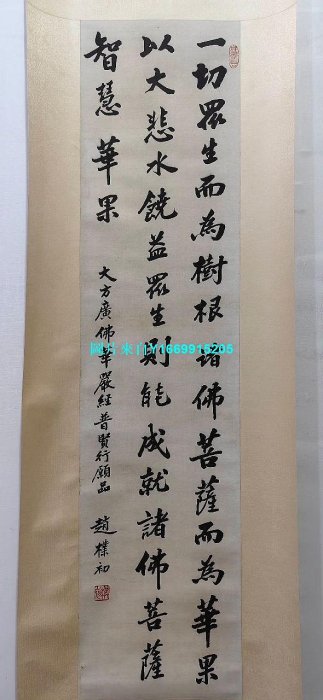 一切眾生而為樹根諸佛菩薩而為華果
以大悲水饒益眾生則能成就諸佛菩薩
智慧華果
大方廣佛華嚴經普賢行願品
趙樸初
圖片來自Y1669915205